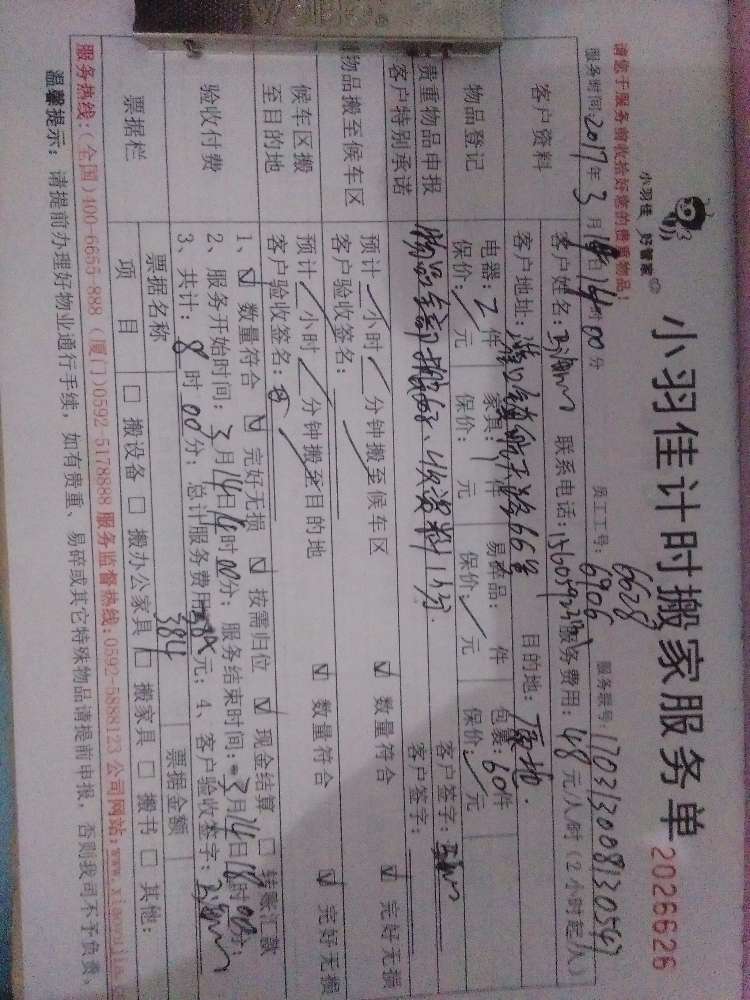 小羽佳 好管家
小羽佳计时搬家服务单 2026626
请您于服务前收拾好您的贵重物品!
员工工号: 6628 6906 服务账号:
服务时间: 2017 年 3 月 14 日 14 时 00 分
客户资料
客户姓名: 联系电话: 服务费用: 48 元/人/时 (2小时起/人)
客户地址: 66号 目的地:
物品登记
电器: 2 件 家具: 1 件 易碎品: 件 包裹: 60 件
保价: 元 保价: 元 保价: 元 保价: 元
贵重物品申报
客户特别承诺
物品全部搬好、收资料1份.
客户签字:
客户签字:
物品搬至候车区
预计 小时 分钟搬至候车区 ☑ 数量符合 ☑ 完好无损
客户验收签名:
候车区搬至目的地
预计 小时 分钟搬至目的地 ☑ 数量符合 ☑ 完好无损
客户验收签名:
验收付费
1、☑ 数量符合 ☑ 完好无损 ☑ 按需归位 ☑ 现金结算 □ 转账汇款
2、服务开始时间: 3 月 14 日 14 时 00 分; 服务结束时间: 3 月 14 日 18 时 00 分;
3、共计: 8 时 00 分; 总计服务费用 384 元; 4、客户验收签字:
票据栏
票据名称 票据金额
项目 □ 搬设备 □ 搬办公家具 □ 搬家具 □ 搬书 □ 其他:
服务热线:(全国)400-6655-888 (厦门)0592-5178888 服务监督热线:0592-5888123 公司网站:www.xiaoyujia.c
温馨提示: 请提前办理好物业通行手续, 如有贵重、易碎或其它特殊物品请提前申报, 否则我司不予负责,